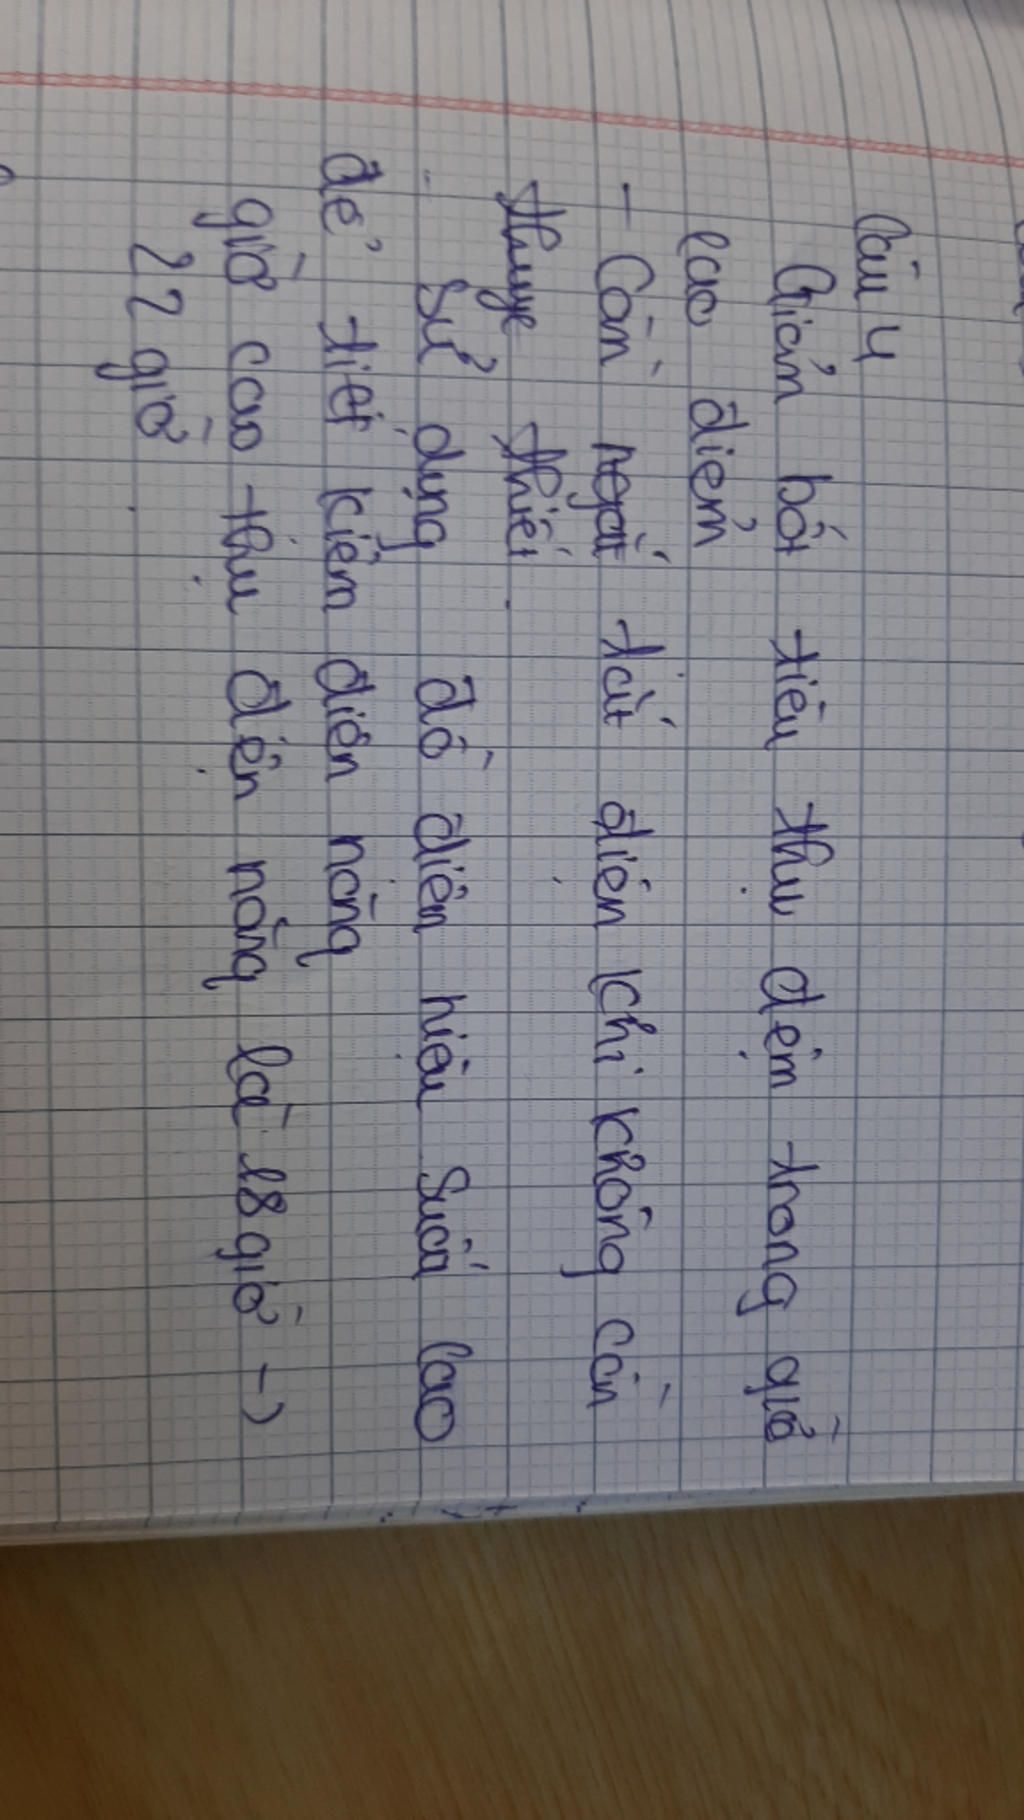 Câu 4
Giảm bớt tiêu thụ điện trong giờ
cao điểm
- Cần ngắt tắt điện khi không cần
thiết
- Sử dụng đồ điện hiệu suất cao
để tiết kiệm điện năng
giờ cao thụ điện năng là 18 giờ ->
22 giờ